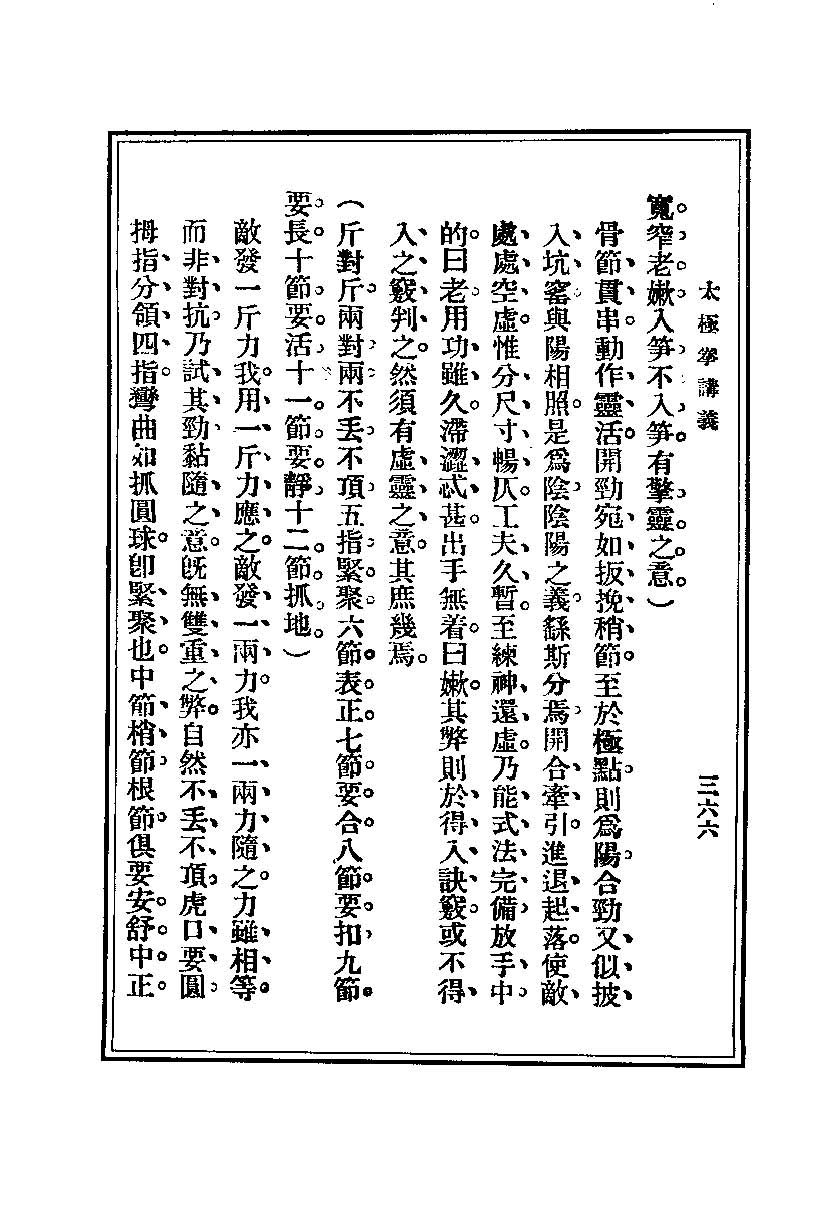 太極拳講義
三六六
寬窄老嫩入筍不入筍有擎靈之意。）
骨節貫串。動作靈活。開勁宛如扳挽稍節。至於極點則爲陽。合勁又似披
入坑窰與陽相照。是爲陰。陰陽之義。繇斯分焉。開合牽引。進退起落。使敵
處處空虛。惟分尺寸暢仄。工夫久暫。至練神還虛。乃能式法完備。放手中
的。曰老。用功雖久。滯澀忒甚。出手無着。曰嫩。其弊則於得入訣竅。或不得
入之竅判之。然須有虛靈之意。其庶幾焉。
（斤對斤。兩對兩。不丟不頂。五指緊聚。六節表正。七節要合。八節要扣。九節
要長。十節要活。十一節要靜。十二節抓地。）
敵發一斤力。我用一斤力應之。敵發一兩力。我亦一兩力隨之。力雖相等。
而非對抗。乃試其勁黏隨之意。旣無雙重之弊。自然不丟不頂。虎口要圓。
拇指分領。四指彎曲如抓圓球。卽緊聚也。中節梢節根節。俱要安舒中正。